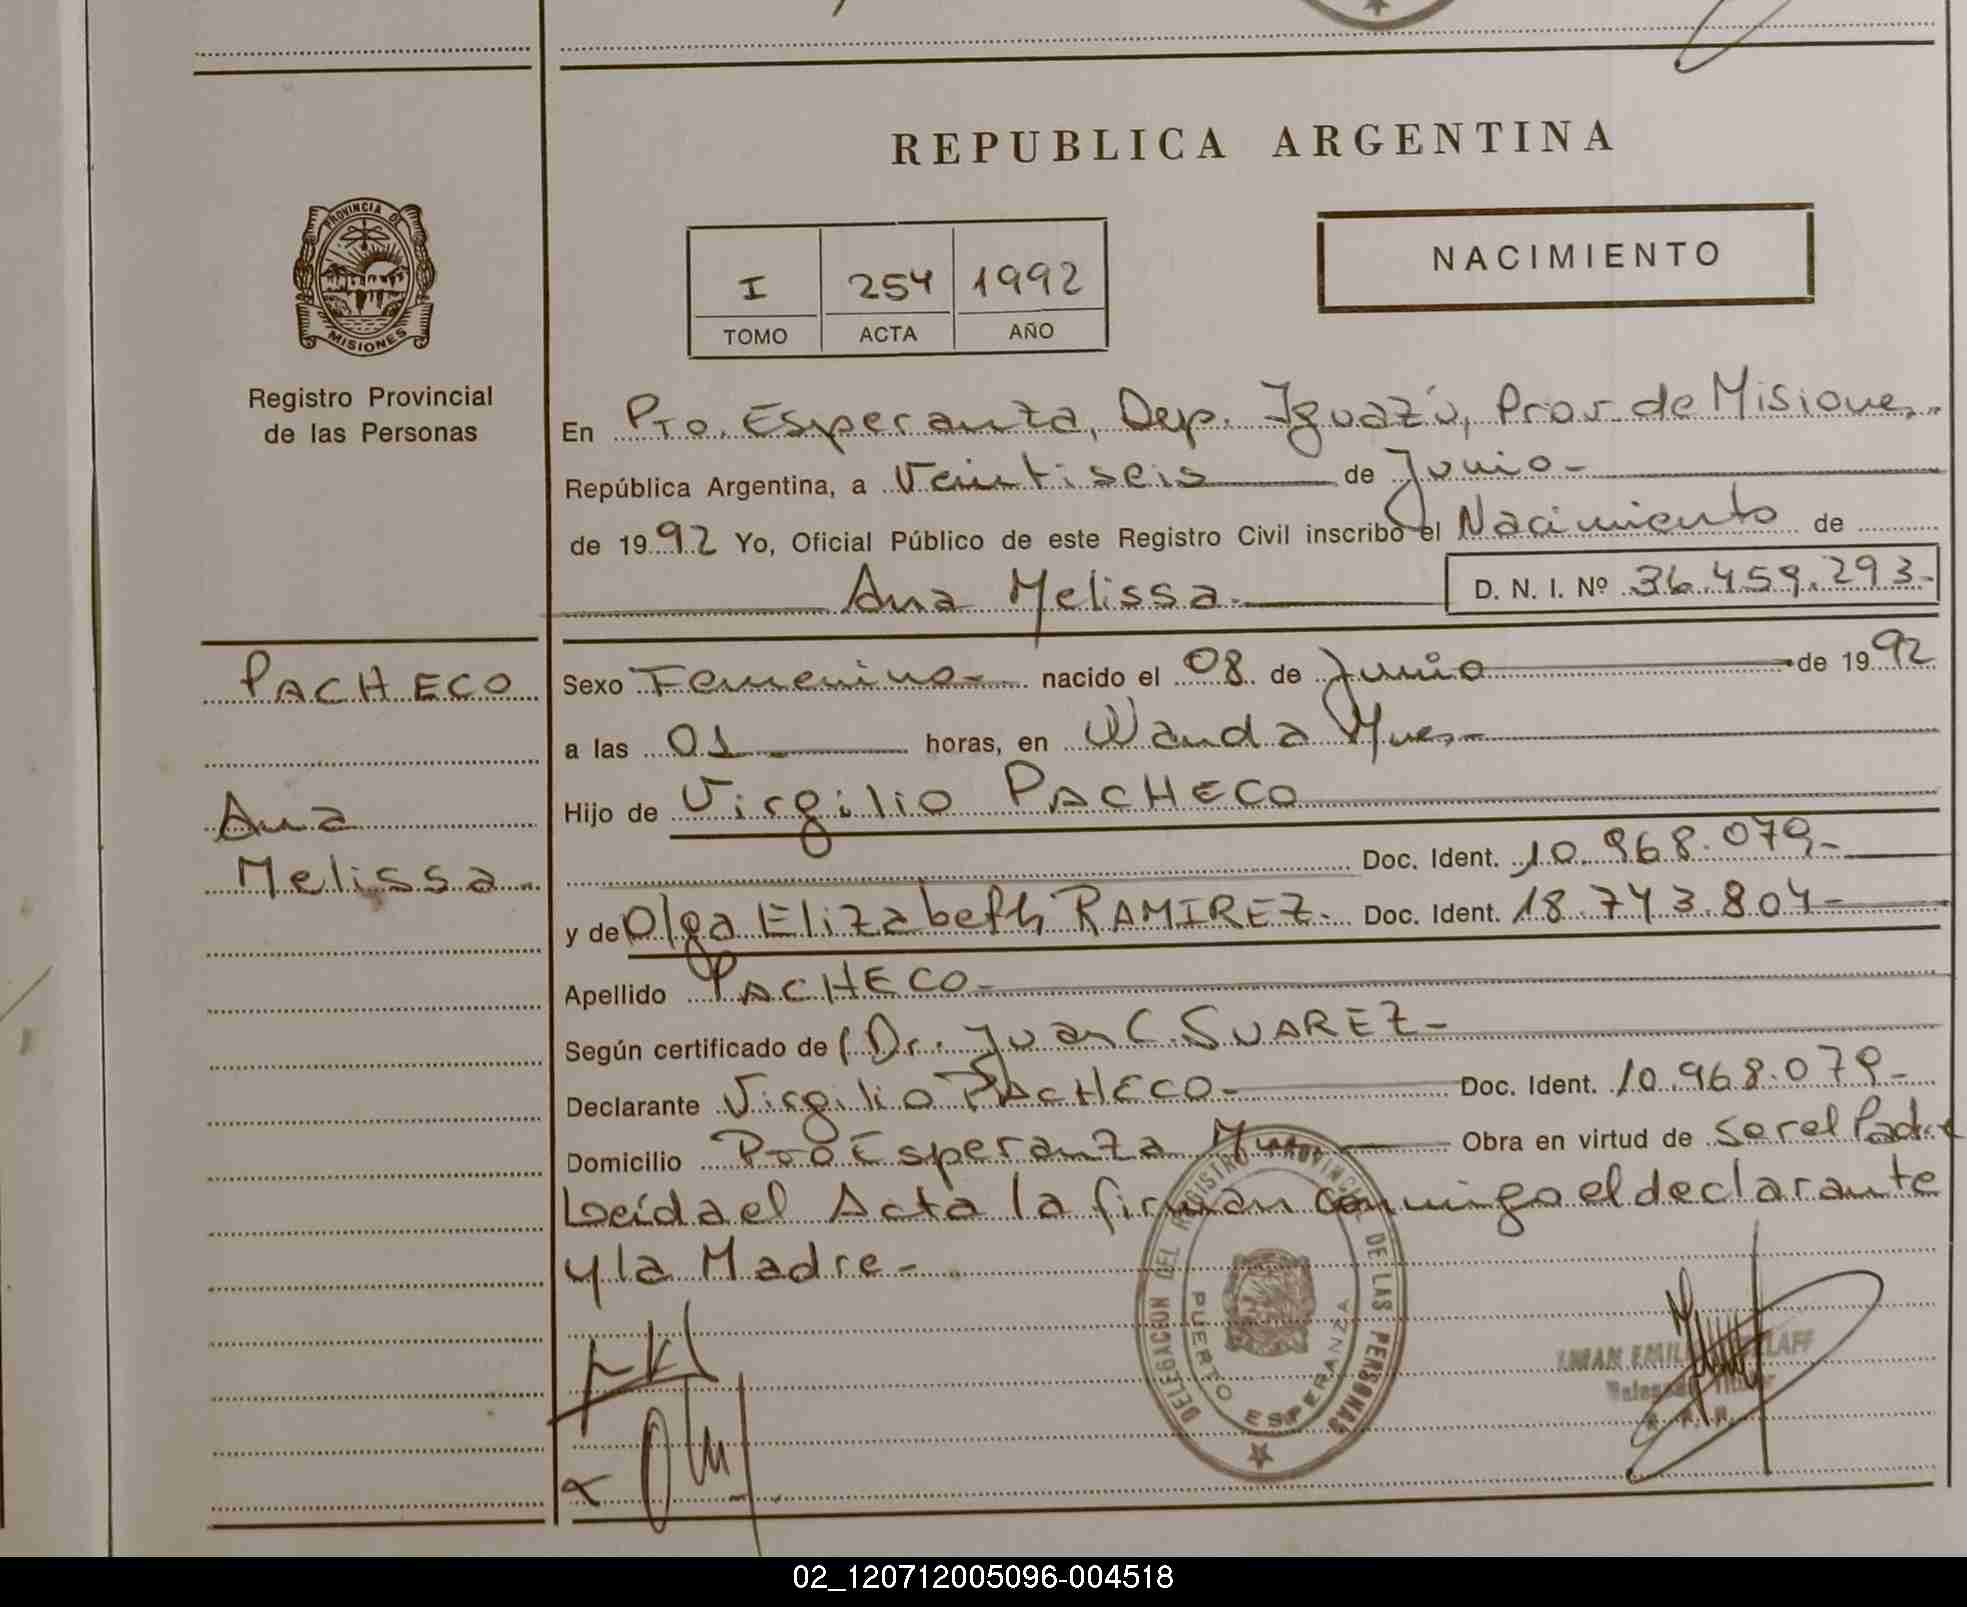 REPUBLICA ARGENTINA
PROVINCIA DE
MISIONES
Registro Provincial
de las Personas
I 254 1992
TOMO ACTA AÑO
NACIMIENTO
En Pto. Esperanza, Dep. Iguazú, Prov. de Misiones
República Argentina, a Veintiseis de Junio
de 1992 Yo, Oficial Público de este Registro Civil inscribo el Nacimiento de
Ana Melissa.
D. N. I. Nº 36.459.293-
PACHECO
Ana
Melissa
Sexo Femenino- nacido el 08 de Junio de 1992
a las 01 horas, en Wanda Mnes-
Hijo de Virgilio PACHECO
Doc. Ident. 10.968.079-
y de Olga Elizabeth RAMIREZ- Doc. Ident. 18.743.804-
Apellido PACHECO-
Según certificado de (Dr. Juan C. SUAREZ-
Declarante Virgilio PACHECO- Doc. Ident. 10.968.079-
Domicilio Pto Esperanza Mnes Obra en virtud de ser el Padre
Leída el Acta la firman conmigo el declarante
y la Madre-
DELEGACION DEL REGISTRO PROVINCIAL DE LAS PERSONAS
PUERTO ESPERANZA
02_120712005096-004518